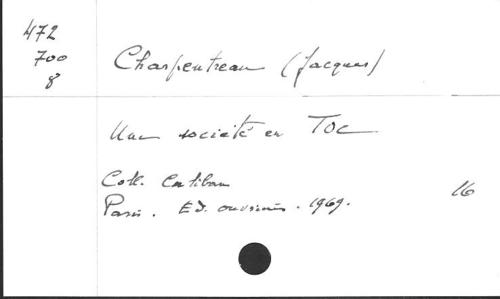 472
700
8
Charpentreau (Jacques)
Une société en Toc
Coll. Caliban
Paris. Ed. ouvrières. 1969.
16